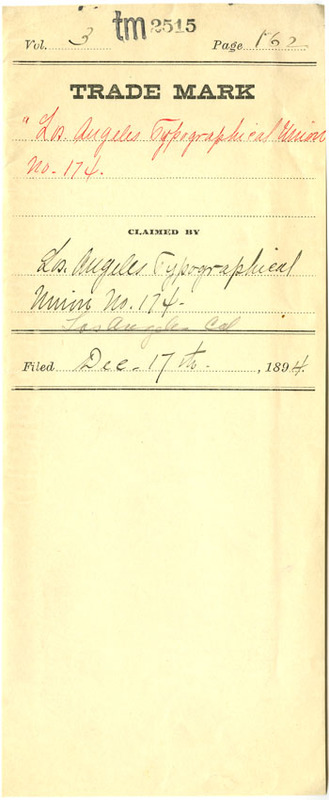 tm 2515
Vol. 3 Page 162
TRADE MARK
"Los Angeles Typographical Union
No. 174.
CLAIMED BY
Los. Angeles Typographical
Union No. 174.
Los Angeles Cal
Filed Dec. 17th. , 1894.